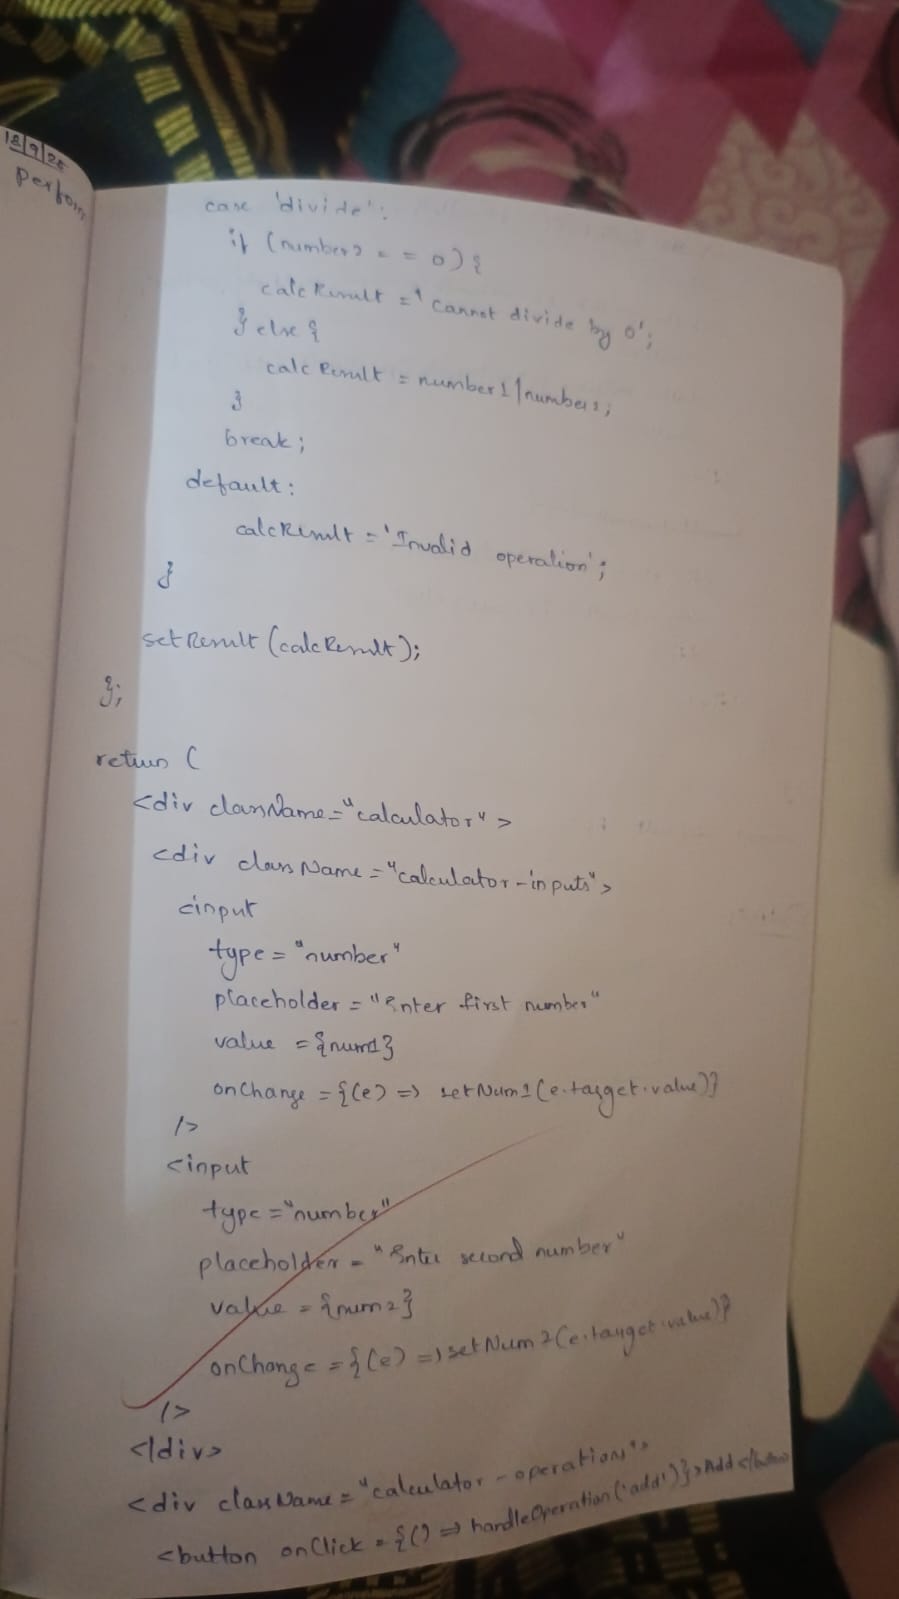 18/9/25
perform
case 'divide':
if (number2 = = 0) {
calcResult = 'cannot divide by 0';
} else {
calc Result = number1/number2;
}
break;
default:
calcResult = 'Invalid operation';
}
setResult (calcResult);
};
return (
<div className="calculator">
<div className="calculator-inputs">
<input
type="number"
placeholder="Enter first number"
value={num1}
onChange={(e) => setNum1(e.target.value)}
/>
<input
type="number"
placeholder="Enter second number"
value={num2}
onChange={(e) => setNum2(e.target.value)}
/>
</div>
<div className="calculator-operations">
<button onClick={() => handleOperation('add')}>Add</button>